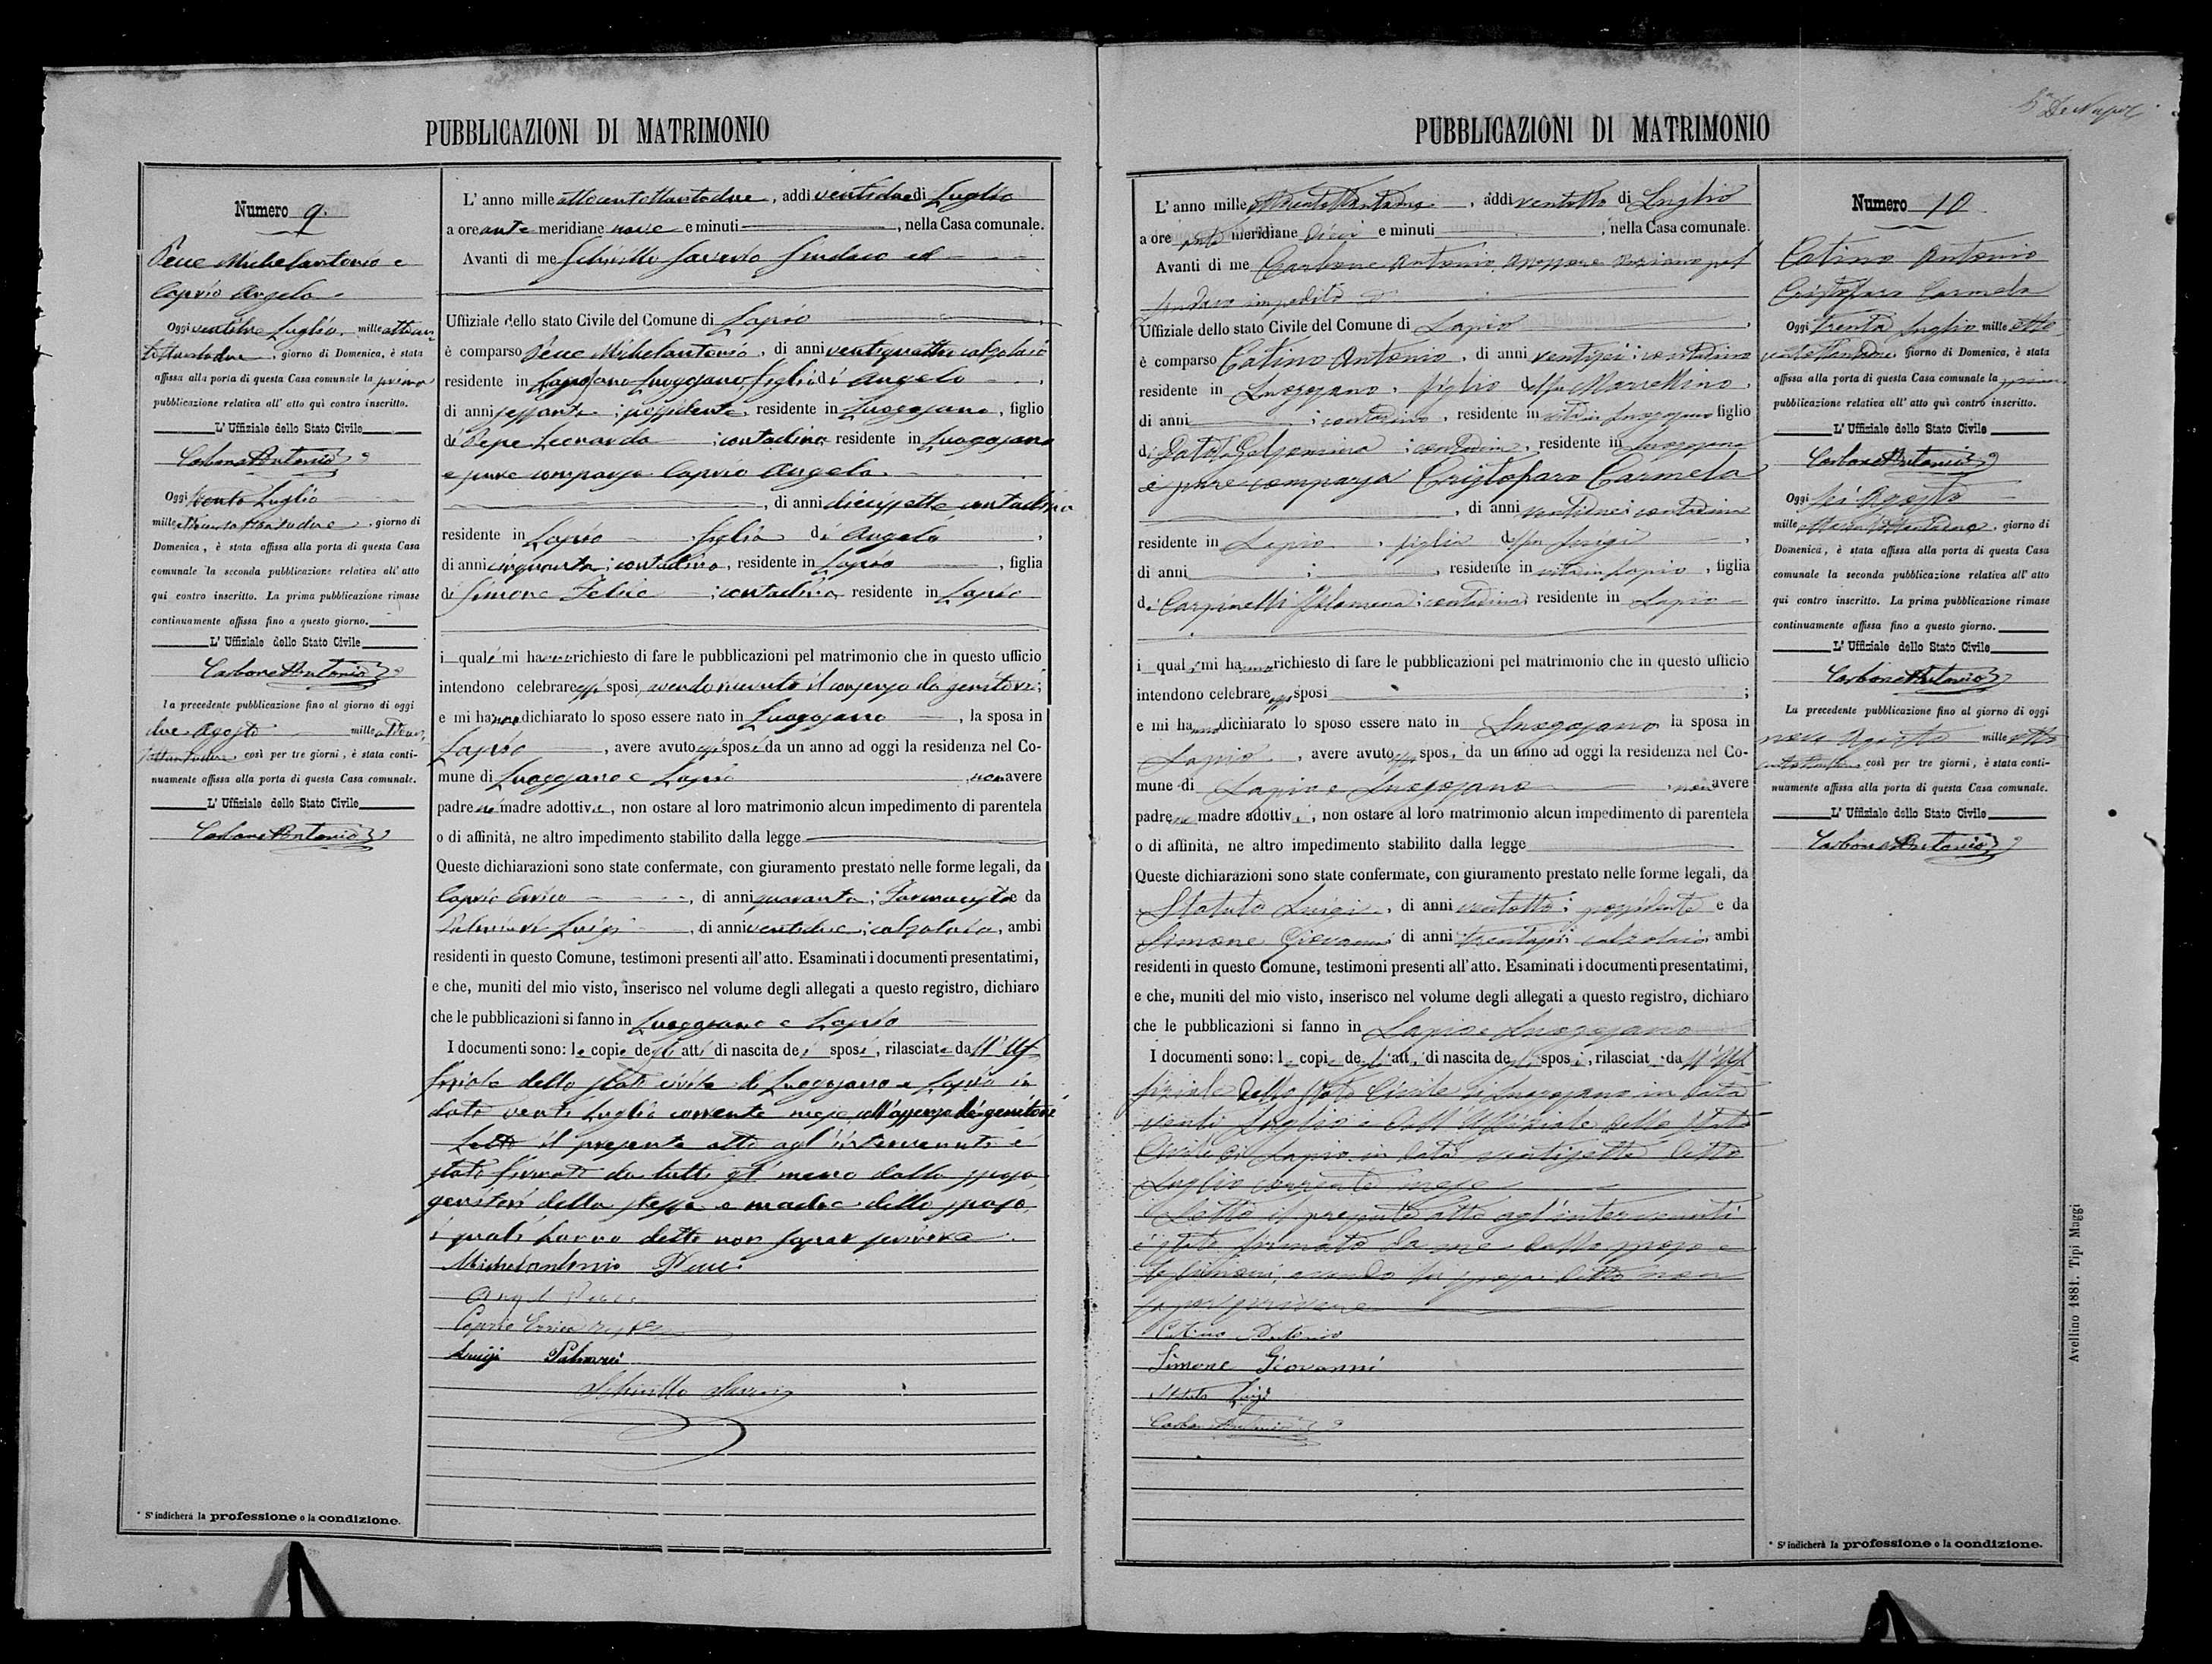 PUBBLICAZIONI DI MATRIMONIO
Numero 9.
Pecce Michelantonio e
Caprio Angela
Oggi ventitre Luglio mille ottocen
tottantadue, giorno di Domenica, è stata
affissa alla porta di questa Casa comunale la prima
pubblicazione relativa all' atto quì contro inscritto.
L' Uffiziale dello Stato Civile
Carbone Antonio
Oggi trenta Luglio
mille ottocentottantadue, giorno di
Domenica, è stata affissa alla porta di questa Casa
comunale la seconda pubblicazione relativa all' atto
qui contro inscritto. La prima pubblicazione rimase
continuamente affissa fino a questo giorno.
L' Uffiziale dello Stato Civile
Carbone Antonio
La precedente pubblicazione fino al giorno di oggi
due Agosto mille ottocen
tottantadue, così per tre giorni, è stata conti-
nuamente affissa alla porta di questa Casa comunale.
L' Uffiziale dello Stato Civile
Carbone Antonio
* S' indicherà la professione o la condizione.
L' anno mille ottocentottantadue, addì ventidue di Luglio
a ore ante meridiane nove e minuti , nella Casa comunale.
Avanti di me Schirillo Saverio Sindaco ed
Uffiziale dello stato Civile del Comune di Lapio
è comparso Pecce Michelantonio, di anni ventiquattro calzolaio
residente in Luogosano, figlio di Angelo
di anni sessanta; possidente, residente in Luogosano, figlio
di Pepe Leonarda ; contadina residente in Luogosano
e pure comparsa Caprio Angela
, di anni diciassette contadina
residente in Lapio , figlia di Angelo ,
di anni cinquanta; contadino, residente in Lapio , figlia
di Simone Felice ; contadina residente in Lapio
i quali mi hanno richiesto di fare le pubblicazioni pel matrimonio che in questo ufficio
intendono celebrare essi sposi, avendo ricevuto il consenso da genitori;
e mi hanno dichiarato lo sposo essere nato in Luogosano , la sposa in
Lapio , avere avuto essi sposi da un anno ad oggi la residenza nel Co-
mune di Luogosano e Lapio , non avere
padre ne madre adottivi, non ostare al loro matrimonio alcun impedimento di parentela
o di affinità, ne altro impedimento stabilito dalla legge
Queste dichiarazioni sono state confermate, con giuramento prestato nelle forme legali, da
Caprio Errico , di anni quaranta; Farmacista e da
Palmieri Luigi , di anni ventidue; calzolaio, ambi
residenti in questo Comune, testimoni presenti all' atto. Esaminati i documenti presentatimi,
e che, muniti del mio visto, inserisco nel volume degli allegati a questo registro, dichiaro
che le pubblicazioni si fanno in Luogosano e Lapio
I documenti sono: le copie degli atti di nascita dei sposi, rilasciate dall' Uf
fiziale dello stato civile di Luogosano e Lapio in
data venti Luglio corrente mese, all'assenza dei genitori
Letto il presente atto agl' intervenuti è
stato firmato da tutti gl' meno dalla sposa
genitori della stessa e madre dello sposo,
i quali hanno detto non saper scrivere
Michelantonio Pecce
Angelo Pecce
Caprio Errico
Luigi Palmieri
Schirillo Saverio
PUBBLICAZIONI DI MATRIMONIO
L' anno mille ottocentottantadue , addì ventotto di Luglio
a ore ante meridiane dieci e minuti , nella Casa comunale.
Avanti di me Carbone Antonio Assessore Anziano pel
Sindaco impedito
Uffiziale dello stato Civile del Comune di Lapio ,
è comparso Catino Antonio, di anni ventisei; contadino
residente in Luogosano, figlio del fu Marcellino,
di anni ; contadino, residente in vita in Luogosano figlio
di ; contadina, residente in Luogosano
e pure comparsa Cristofaro Carmela
, di anni ventidue; contadina
residente in Lapio , figlia del fu Luigi ,
di anni ; , residente in vita in Lapio , figlia
di Carpinelli Filomena; contadina; residente in Lapio
i quali mi hanno richiesto di fare le pubblicazioni pel matrimonio che in questo ufficio
intendono celebrare essi sposi ;
e mi hanno dichiarato lo sposo essere nato in Luogosano la sposa in
Lapio , avere avuto essi sposi da un anno ad oggi la residenza nel Co-
mune di Lapio e Luogosano , non avere
padre ne madre adottivi, non ostare al loro matrimonio alcun impedimento di parentela
o di affinità, ne altro impedimento stabilito dalla legge
Queste dichiarazioni sono state confermate, con giuramento prestato nelle forme legali, da
Statuto Luigi , di anni ventotto; possidente e da
Simone Giovanni di anni trentasei calzolaio, ambi
residenti in questo Comune, testimoni presenti all' atto. Esaminati i documenti presentatimi,
e che, muniti del mio visto, inserisco nel volume degli allegati a questo registro, dichiaro
che le pubblicazioni si fanno in Lapio e Luogosano
I documenti sono: le copie degli atti di nascita degli sposi, rilasciate dall' Uf
fiziale dello Stato Civile di Luogosano in data
venti Luglio e dall' Uffiziale dello Stato
Civile di Lapio in data ventisette detto
Luglio corrente mese
Letto il presente atto agl' intervenuti
è stato firmato da me dallo sposo e
testimoni, avendo la sposa detto non
saper scrivere
Catino Antonio
Simone Giovanni
Statuto Luigi
Carbone Antonio
Numero 10
Catino Antonio
Cristofaro Carmela
Oggi trenta Luglio mille otto
centottantadue, giorno di Domenica, è stata
affissa alla porta di questa Casa comunale la prima
pubblicazione relativa all' atto quì contro inscritto.
L' Uffiziale dello Stato Civile
Carbone Antonio
Oggi sei Agosto
mille ottocentottantadue, giorno di
Domenica, è stata affissa alla porta di questa Casa
comunale la seconda pubblicazione relativa all' atto
qui contro inscritto. La prima pubblicazione rimase
continuamente affissa fino a questo giorno.
L' Uffiziale dello Stato Civile
Carbone Antonio
La precedente pubblicazione fino al giorno di oggi
nove Agosto mille otto
centottantadue così per tre giorni, è stata conti-
nuamente affissa alla porta di questa Casa comunale.
L' Uffiziale dello Stato Civile
Carbone Antonio
* S' indicherà la professione o la condizione.
Avellino 1881. Tipi Maggi